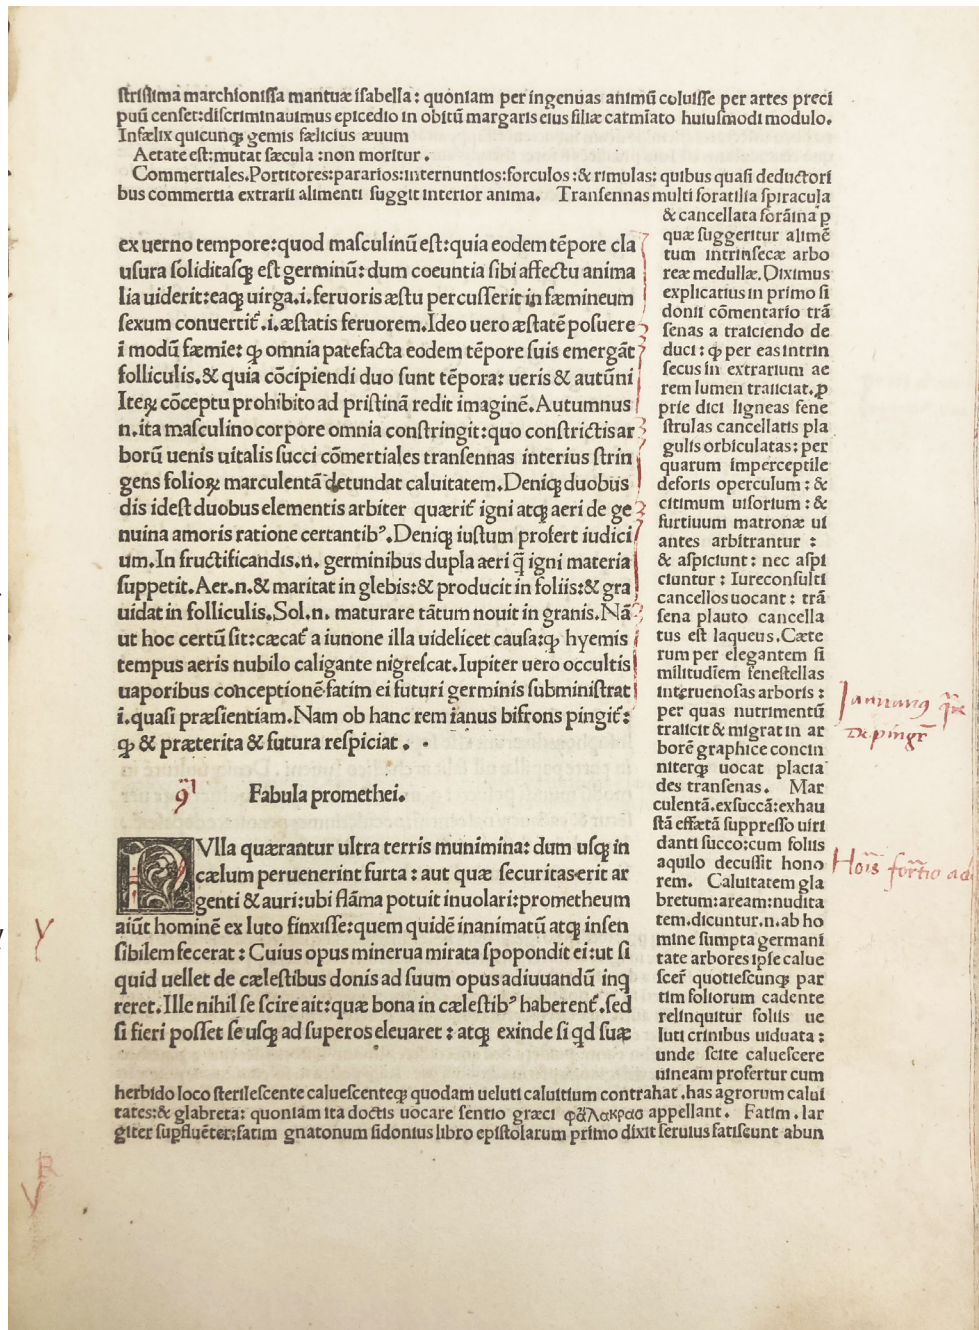 ſtriſſima marchioniſſa mantuæ iſabella: quoniam per ingenuas animū coluiſſe per artes preci
puū cenſet:diſcriminauimus epicedio in obitū margaris eius filiæ carmiato huiuſmodi modulo.
Infælix quicunqꝫ gemis fælicius æuum
Aetate eſt:mutat ſæcula :non moritur.
Commertiales.Portitores:pararios:internuntios:forculos:& rimulas: quibus quaſi deductori
bus commertia extrarii alimenti ſuggit interior anima. Tranſennas multi foratilia ſpiracula
ex uerno tempore:quod maſculinū eſt:quia eodem tēpore cla
uſura ſoliditaſqꝫ eſt germinū: dum coeuntia ſibi affectu anima
lia uiderit:eaqꝫ uirga.i.feruoris æſtu percuſſerit in fæmineum
ſexum conuertit᷑.i.æſtatis feruorem.Ideo uero æſtatē poſuere
ī modū fæmīe: ꝙ omnia patefacta eodem tēpore ſuis emergāt
folliculis.& quia cōcipiendi duo ſunt tēpora: ueris & autūni
Iteꝝ cōceptu prohibito ad priſtinā redit imaginē.Autumnus
n.ita maſculino corpore omnia conſtringit:quo conſtrictis ar
borū uenis uitalis ſucci cōmertiales tranſennas interius ſtrin
gens folioꝝ marculentā detundat caluitatem.Deniqꝫ duobus
dis ideſt duobus elementis arbiter quærit᷑ igni atqꝫ aeri de ge
nuina amoris ratione certantibꝰ.Deniqꝫ iuſtum profert iudici
um.In fructificandis.n. germinibus dupla aeri q̄ igni materia
ſuppetit.Aer.n.& maritat in glebis:& producit in foliis:& gra
uidat in folliculis.Sol.n. maturare tātum nouit in granis.Nā
ut hoc certū ſit:cæcat᷑ a iunone illa uidelicet cauſa:ꝙ hyemis
tempus aeris nubilo caligante nigreſcat.Iupiter uero occultis
uaporibus conceptionē fatim ei futuri germinis ſubminiſtrat
i.quaſi præſientiam.Nam ob hanc rem ianus bifrons pingit᷑:
ꝙ & præterita & futura reſpiciat.
Fabula promethei.
NVlla quærantur ultra terris munimina: dum uſqꝫ in
cælum peruenerint furta: aut quæ ſecuritas erit ar
genti & auri:ubi flāma potuit inuolari:prometheum
aiūt hominē ex luto finxiſſe:quem quidē inanimatū atqꝫ inſen
ſibilem fecerat: Cuius opus minerua mirata ſpopondit ei:ut ſi
quid uellet de cæleſtibus donis ad ſuum opus adiuuandū inq
reret.Ille nihil ſe ſcire ait:quæ bona in cæleſtibꝰ haberent᷑.ſed
ſi fieri poſſet ſe uſqꝫ ad ſuperos eleuaret: atqꝫ exinde ſi qd ſuæ
& cancellata forāina ꝑ
quæ ſuggeritur alimē
tum intrinſecæ arbo
reæ medullæ.Diximus
explicatius in primo ſi
donii cōmentario trā
ſenas a traiciendo de
duci: ꝙ per eas intrin
ſecus in extrarium ae
rem lumen traiiciat.ꝓ
prie dici ligneas fene
ſtrulas cancellatis pla
gulis orbiculatas: per
quarum imperceptile
deforis operculum: &
citimum uiſorium: &
furtiuum matronæ ui
antes arbitrantur :
& aſpiciunt: nec aſpi
ciuntur: Iureconſulti
cancellos uocant: trā
ſena plauto cancella
tus eſt laqueus.Cæte
rum per elegantem ſi
militudīem feneſtellas
interuenoſas arboris:
per quas nutrimentū
traiicit & migrat in ar
borē graphice concin
niterqꝫ uocat placia
des tranſenas. Mar
culentā.exſuccā:exhau
ſtā effætā ſuppreſſo uiri
danti ſucco:cum foliis
aquilo decuſſit hono
rem. Caluitatem gla
bretum:aream:nudita
tem.dicuntur.n.ab ho
mine ſumpta germani
tate arbores ipſe calue
ſcer̄ quotieſcunqꝫ par
tim foliorum cadente
relinquitur foliis ue
luti crinibus uiduata:
unde ſcite calueſcere
uineam profertur cum
herbido loco ſterileſcente calueſcenteqꝫ quodam ueluti caluitium contrahat.has agrorum calui
tates:& glabreta: quoniam ita doctis uocare ſentio græci φαλακρασ appellant. Fatim.lar
giter ſuꝑfluēter:fatim gnatonum ſidonius libro epiſtolarum primo dixit ſeruius fatiſcunt abun